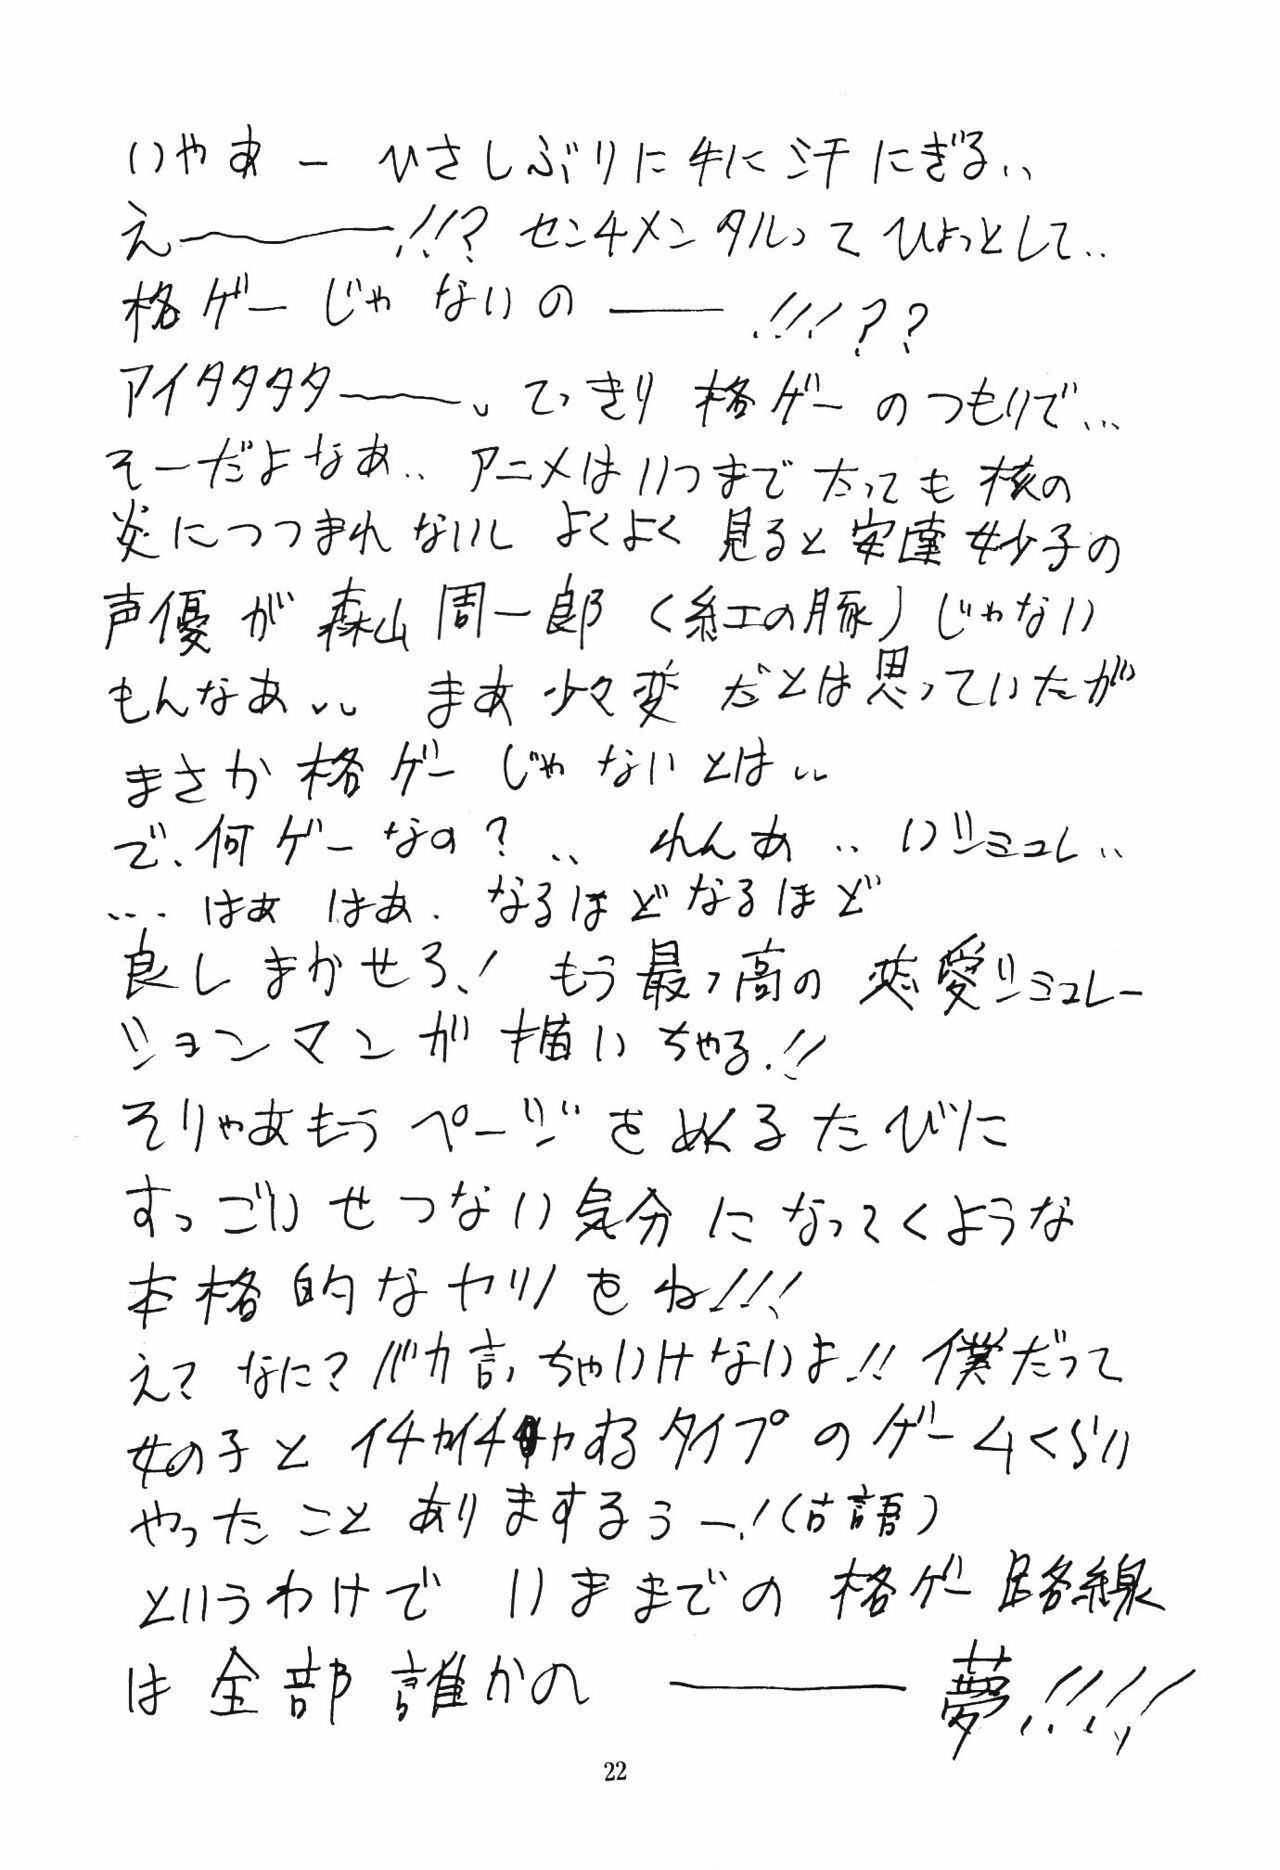 いやあー ひさしぶりに手に汗にぎる‥
え――――!!? センチメンタルってひょっとして‥
格ゲーじゃないの――!!!??
アイタタタタ――、てっきり格ゲーのつもりで…
そーだよなあ‥ アニメはいつまでたっても核の
炎につつまれないし よくよく見ると安達妙子の
声優が森山周一郎(紅の豚)じゃない
もんなあ‥ まあ少々変だとは思っていたが
まさか格ゲーじゃないとは‥
で、何ゲーなの?‥ れんあ‥いシミュレ‥
… はぁ はぁ. なるほどなるほど
良しまかせろ! もう最っ高の恋愛シミュレー
ションマンガ描いちゃる!!
そりゃあもうページをめくるたびに
すっごいせつない気分になってくような
本格的なヤツをね!!!
え? なに? バカ言っちゃいけないよ!! 僕だって
女の子とイチャイチャするタイプのゲームくらい
やったことありまするぅー!(古語)
というわけでいままでの格ゲー路線
は全部誰かの――夢!!!!
22